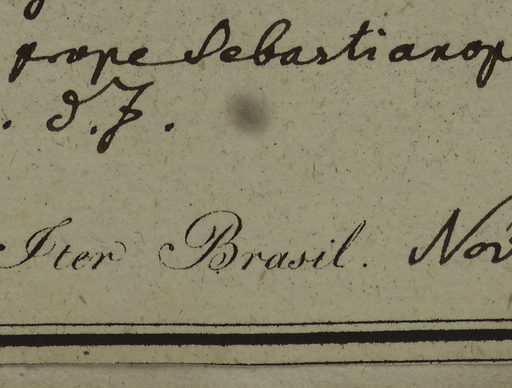 prope Sebastianop
. d. J.
Iter Brasil. Nov